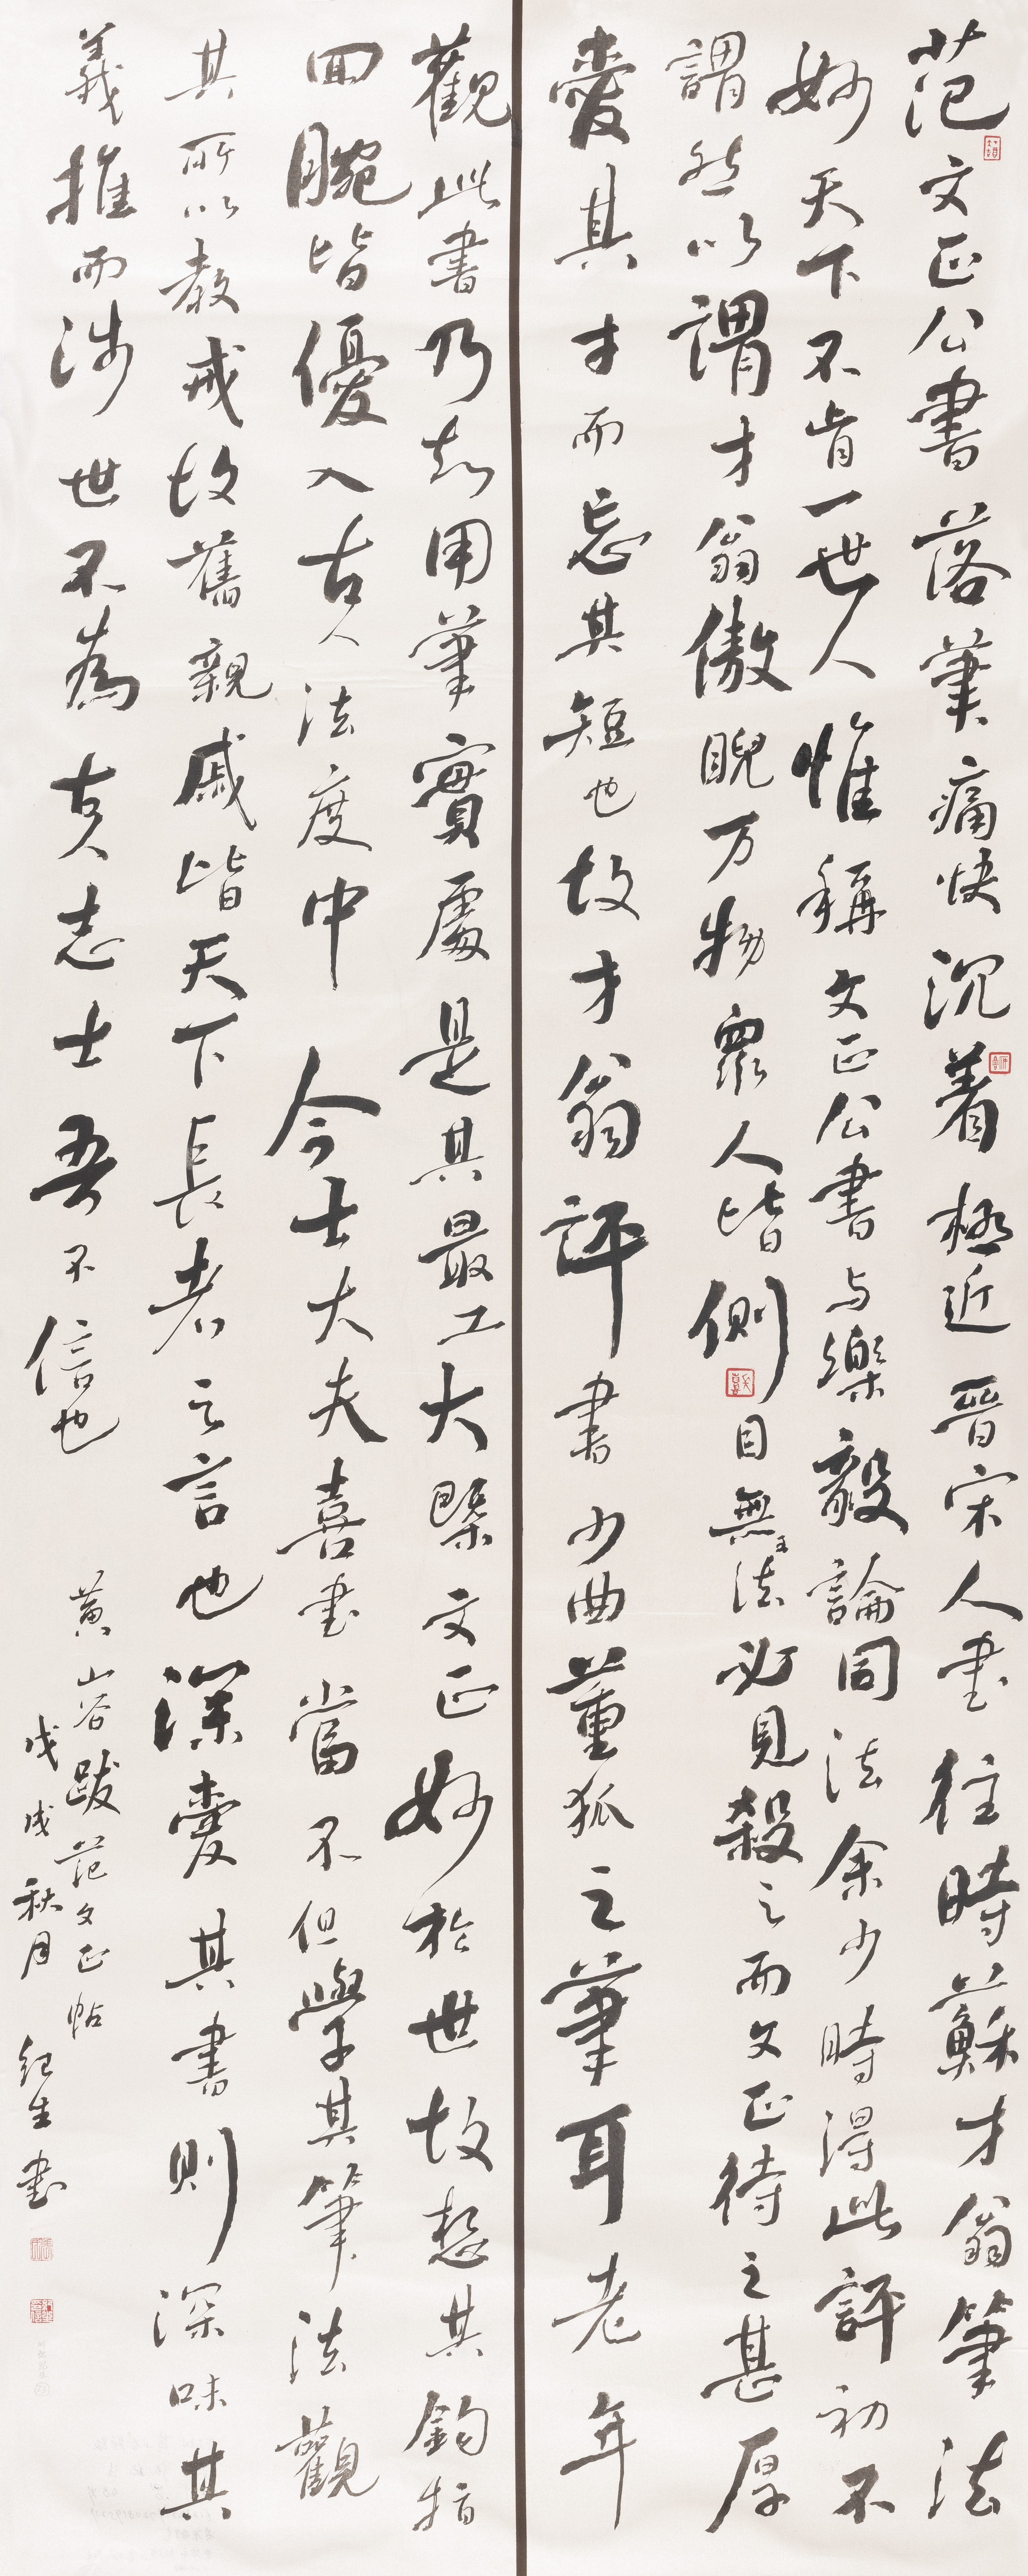 范文正公書落筆痛快沉着極近晉宋人書往時蘇才翁筆法
妙天下不肯一世人惟稱文正公書与樂毅論同法余少時得此評初不
謂然以謂才翁傲睨万物衆人皆側目無王法必見殺之而文正待之甚厚
愛其才而忘其短也故才翁評書少曲董狐之筆耳老年
觀此書乃知用筆實處是其最工大槩文正妙於世故想其鈎指
回腕皆優入古人法度中今士大夫喜書當不但學其筆法觀
其所以教戒故舊親戚皆天下長者之言也深愛其書則深味其
義推而涉世不為古人志士吾不信也
黃山谷跋范文正帖
戊戌秋月紀生書